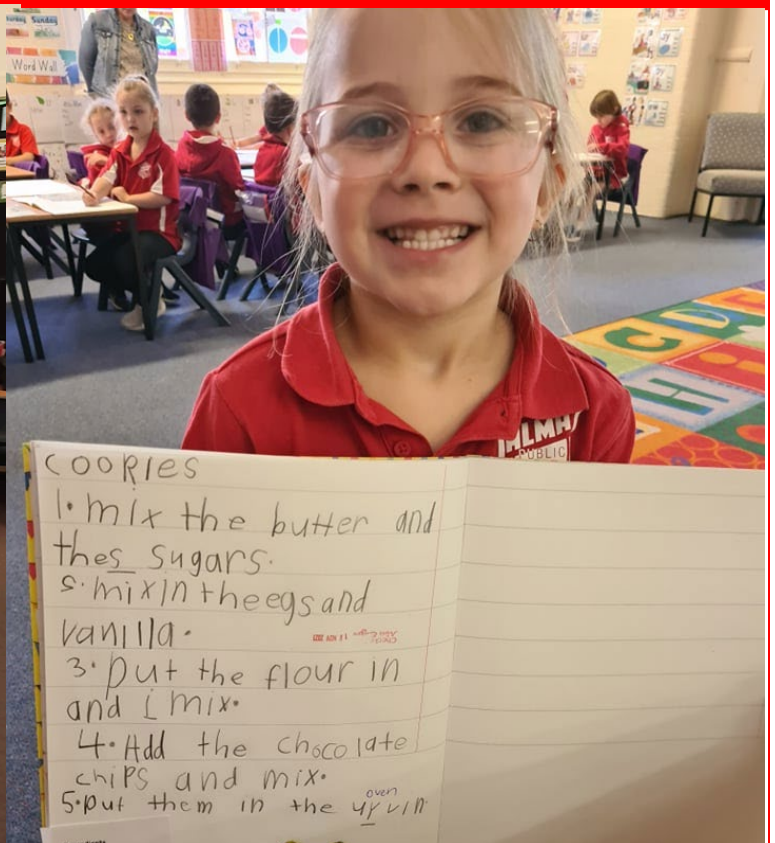 Sunday
Word Wall
C D E
H I
PUBLIC
COOKIES
1. mix the butter and
thes sugars.
s. mix in the egs and
vanilla.
3. put the flour in
and i mix.
4. Add the chocolate
chips and mix.
oven
5. put them in the uyvin